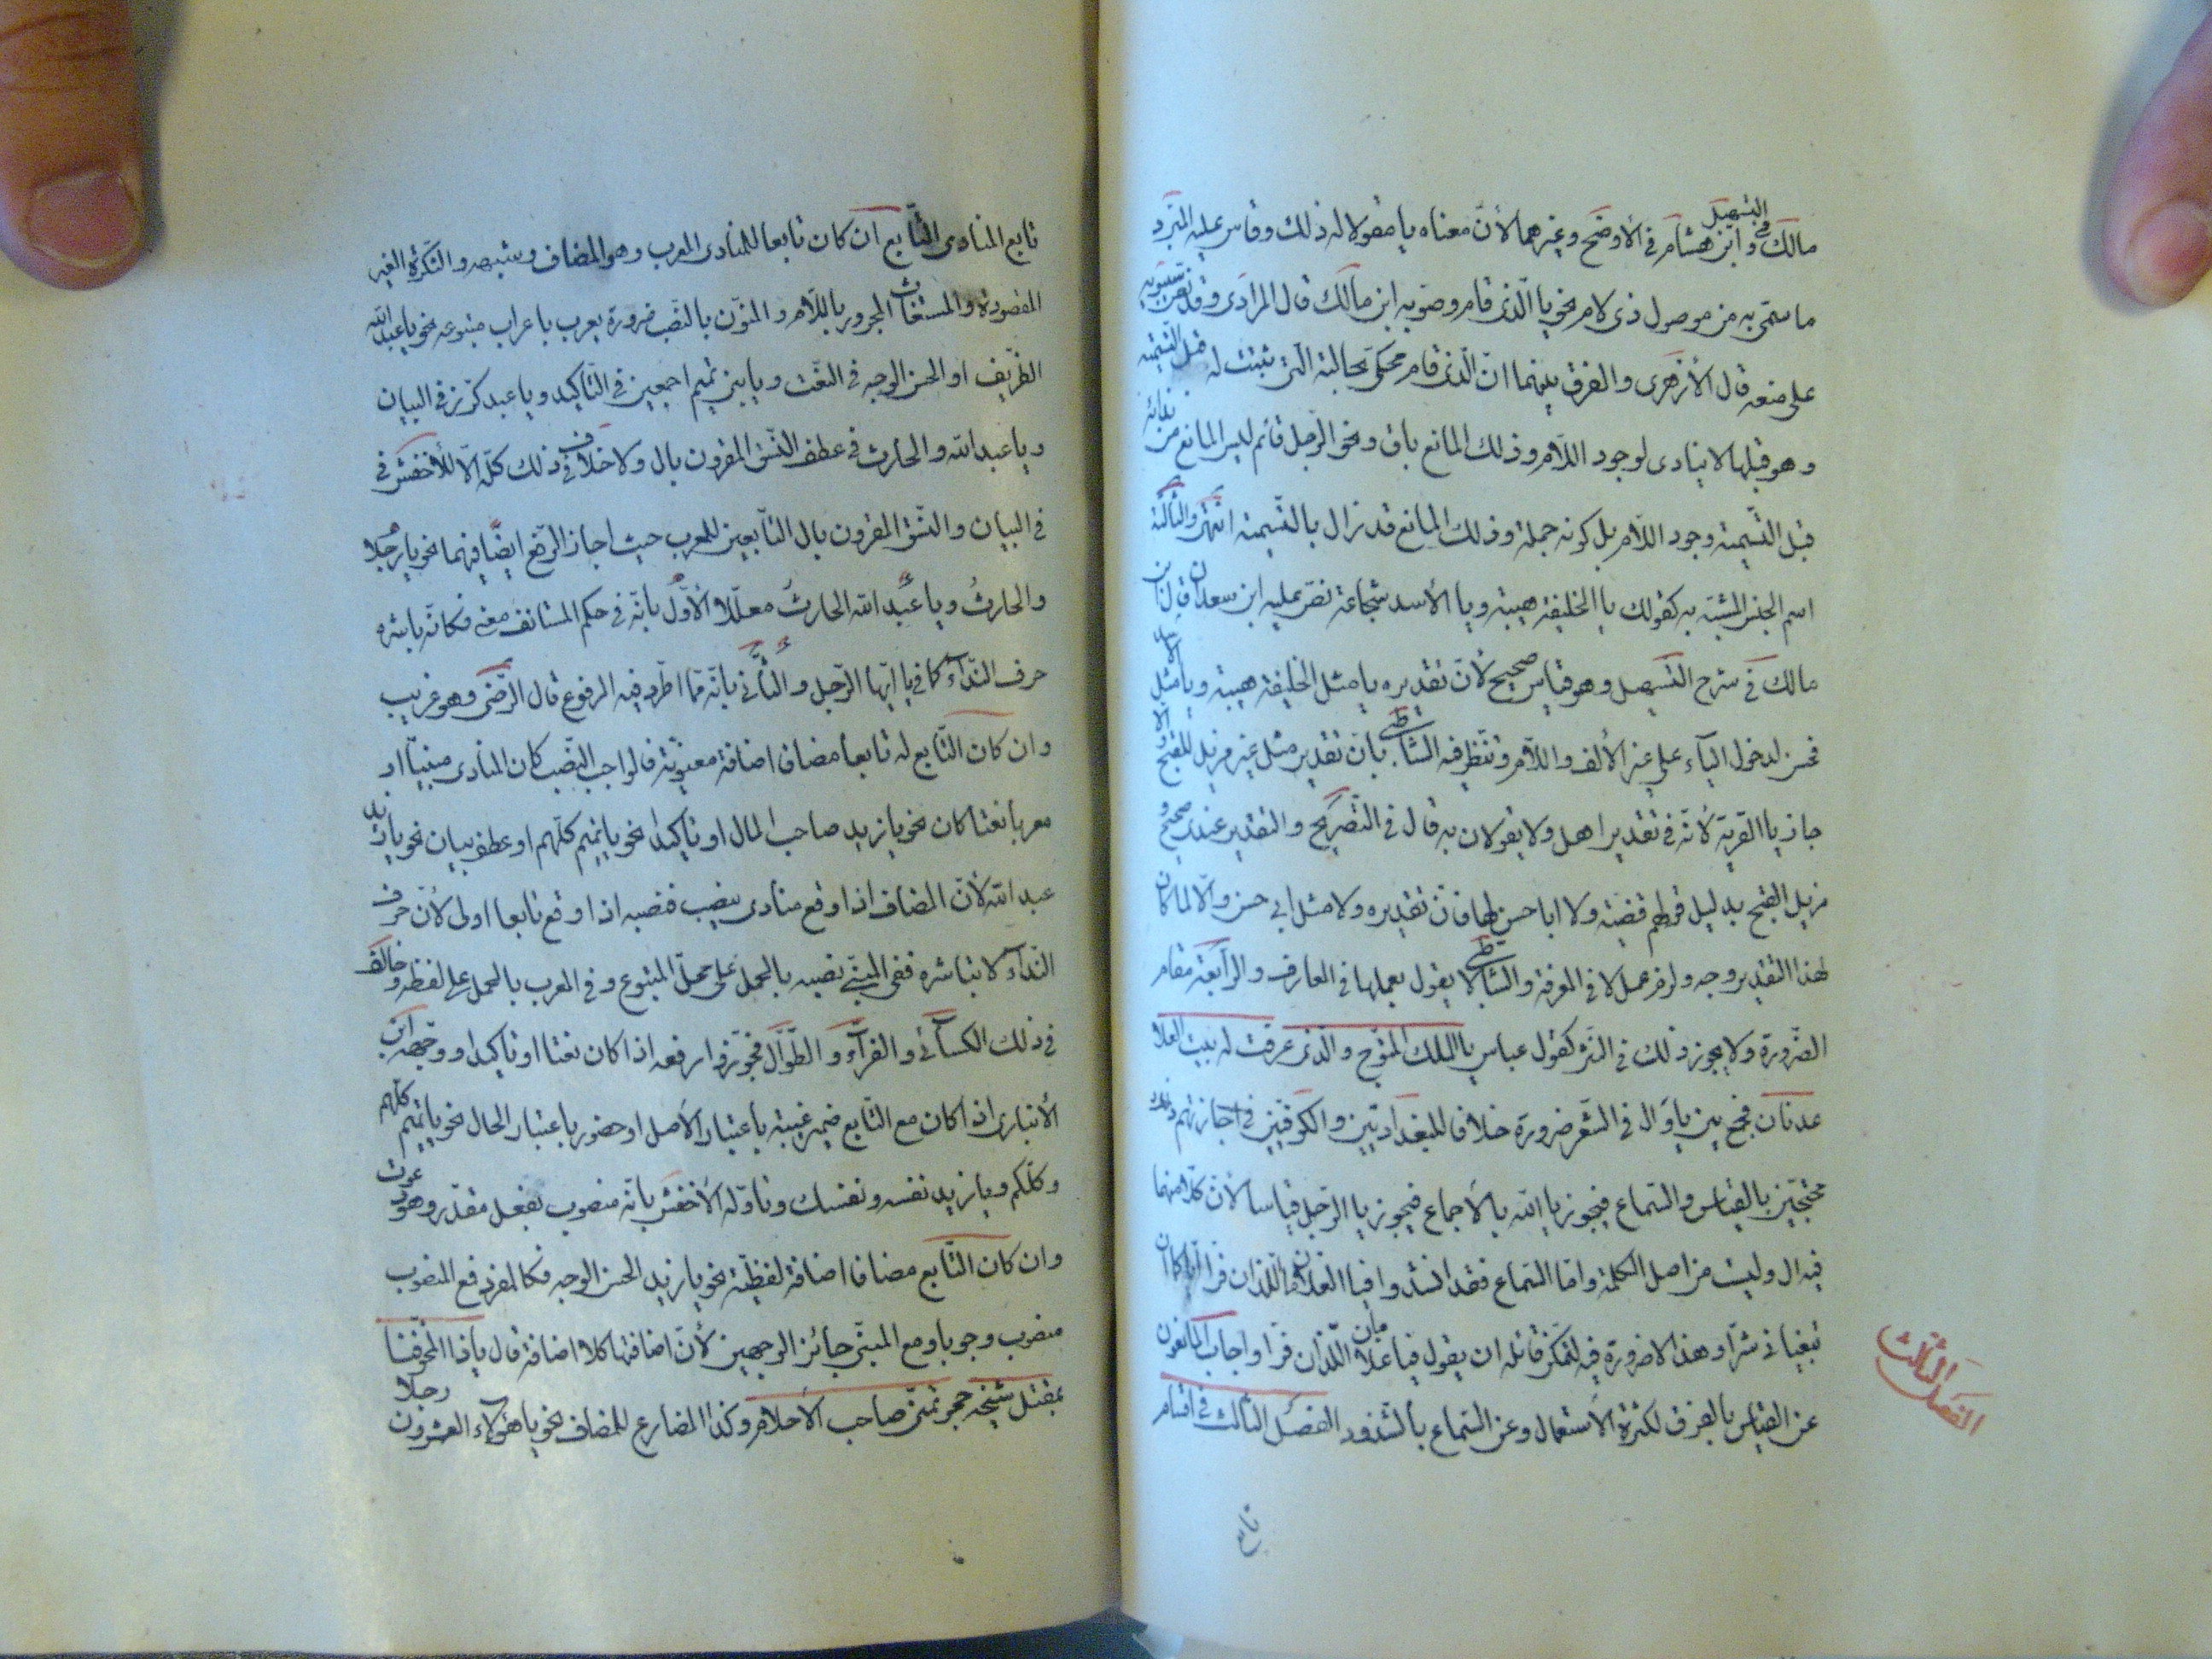 مالك في التسهيل وابن هشام في الأوضح وغيرهما لأنّ معناه يا مقولا له ذلك وقاس عليه المبرد
ما سمّي به من موصول ذي لام نحو يا الّذي قام وصوّبه ابن مالك قال المرادي وقد نصّ سيبويه
على منعه قال الأزهري والفرق بينهما انّ الّذي قام محكيّ بحالته الّتي ثبتت له قبل التّسمية
وهو قبلها لا ينادى لوجود اللّام وذلك المانع باق ونحو الرّجل قائم ليس المانع من ندائه
قبل التّسمية وجود اللّام بل كونه جملة وذلك المانع قد زال بالتّسمية انتهى والثّالثة
اسم الجنس المشبّه به كقولك يا الخليفة هيبة ويا الأسد شجاعة نصّ عليه ابن سعدان قال ابن
مالك في شرح التّسهيل وهو قياس صحيح لأنّ تقديره يا مثل الخليفة هيبة ويا مثل الأسد
فحسن لدخول الياء على غير الألف واللّام وتنظّر فيه الشّاطبي بأنّ تقدير مثل غير مزيل للقبح والّا
جاز يا القرية لأنّه في تقدير اهل ولا يقولان به قال في التّصريح والتقدير عندي صحيح و
مزيل القبح بدليل قولهم قضيّة ولا ابا حسن لها فانّ تقديره ولا مثل ابي حسن والّا لما كان
لهذا التقدير وجه ولزم عمل لا في المعرفة والشّاطبي لا يقول بعملها في المعارف والرّابعة مقام
الضّرورة ولا يجوز ذلك في النثر كقول عباس يا الملك المتوّج والّذي عرفت له بيت العلا
عدنان فجمع بين يا وال في الشّعر ضرورة خلافا للبغداديّين والكوفيّين في اجازتهم ذلك
محتجّين بالقياس والسّماع فيجوز يا اللّه بالأجماع فيجوز يا الرّجل قياسا لأنّ كلا منهما
فيه ال وليست من اصل الكلمة وامّا السّماع فقد انشدوا فيا الغلامان اللّذان فرّا ايّاكما ان
تبغيانى شرّا وهذا لا ضرورة فيه لتمكّن قائله ان يقول فيا غلامان اللّذان فرّا واجاب المانعون
عن القياس بالفرق لكثرة الأستعمال وعن السّماع بالشّذوذ الفصل الثالث في اقسام
الفصل الثالث
تابع
تابع المنادى التّابع ان كان تابعا للمنادى المعرب وهو المضاف وشبهه والنّكرة الغير
المقصودة والمستغاث المجرور باللّام والمنوّن بالنّصب ضرورة يعرب باعراب متبوعه نحو يا عبد اللّه
الظّريف او الحسن الوجه في النعّت ويا بني تميم اجمعين في التّأكيد ويا عبد كرز في البيان
ويا عبد اللّه والحارث في عطف النّسق المقرون بال ولا خلاف في ذلك كلّه الّا للأخفش في
في البيان والنّسق المقرون بال التّابعين للمعرب حيث اجاز الرّفع ايضا فيهما نحو يا رجلا
والحارثُ ويا عبد اللّه الحارثُ معلّلا الأوّل بانّه في حكم المستأنف معنى فكانّه باشره
حرف النّداء كما في يا ايّها الرّجل والثّاني بانّه ممّا اطّرد فيه المرفوع قال الرّضي وهو غريب
وان كان التّابع له تابعا مضاف اضافة معنويّة فالواجب النّصب كان المنادى مبنيّا او
معربا نعتا كان نحو يا زيد صاحب المال او تاكيدا نحو يا تميم كلّهم او عطف بيان نحو يا زيد
عبد اللّه لأنّ المضاف اذا وقع منادى ينصب فنصبه اذا وقع تابعا اولى لأنّ حرف
النّداء لا يباشره ففي المبنيّ نصبه بالحمل على محلّ المتبوع وفي المعرب بالحمل على لفظه وخالف
في ذلك الكسائي والفرّاء والطّوال فجوّزوا رفعه اذا كان نعتا او تاكيدا ووجّهه ابن
الأنباري اذا كان مع التّابع ضمير غيبة باعتبار الأصل او حضور باعتبار الحال نحو يا تميم كلّهم
وكلّكم ويا زيد نفسه ونفسك وتاوّله الأخفش بانّه منصوب بفعل مقدّر وهو
وان كان التّابع مضافا اضافة لفظيّة نحو يا زيد الحسن الوجه فكالمفرد فمع المنصوب
منصوب وجوبا ومع المبنيّ جائز الوجهين لأنّ اضافتها كلا اضافة قال يا ذا المخوّفنا
بمقتل شيخه حجر تمنّي صاحب الأحلام وكذا المضارع للمضاف نحو يا هؤلاء العشرون رجلا